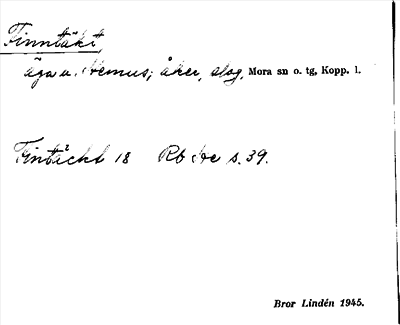 Finntäkt,
äga u. Hemus; åker, slog, Mora sn o. tg, Kopp. l.
Fintäckt 18 Rb He s. 39.
Bror Lindén 1945.